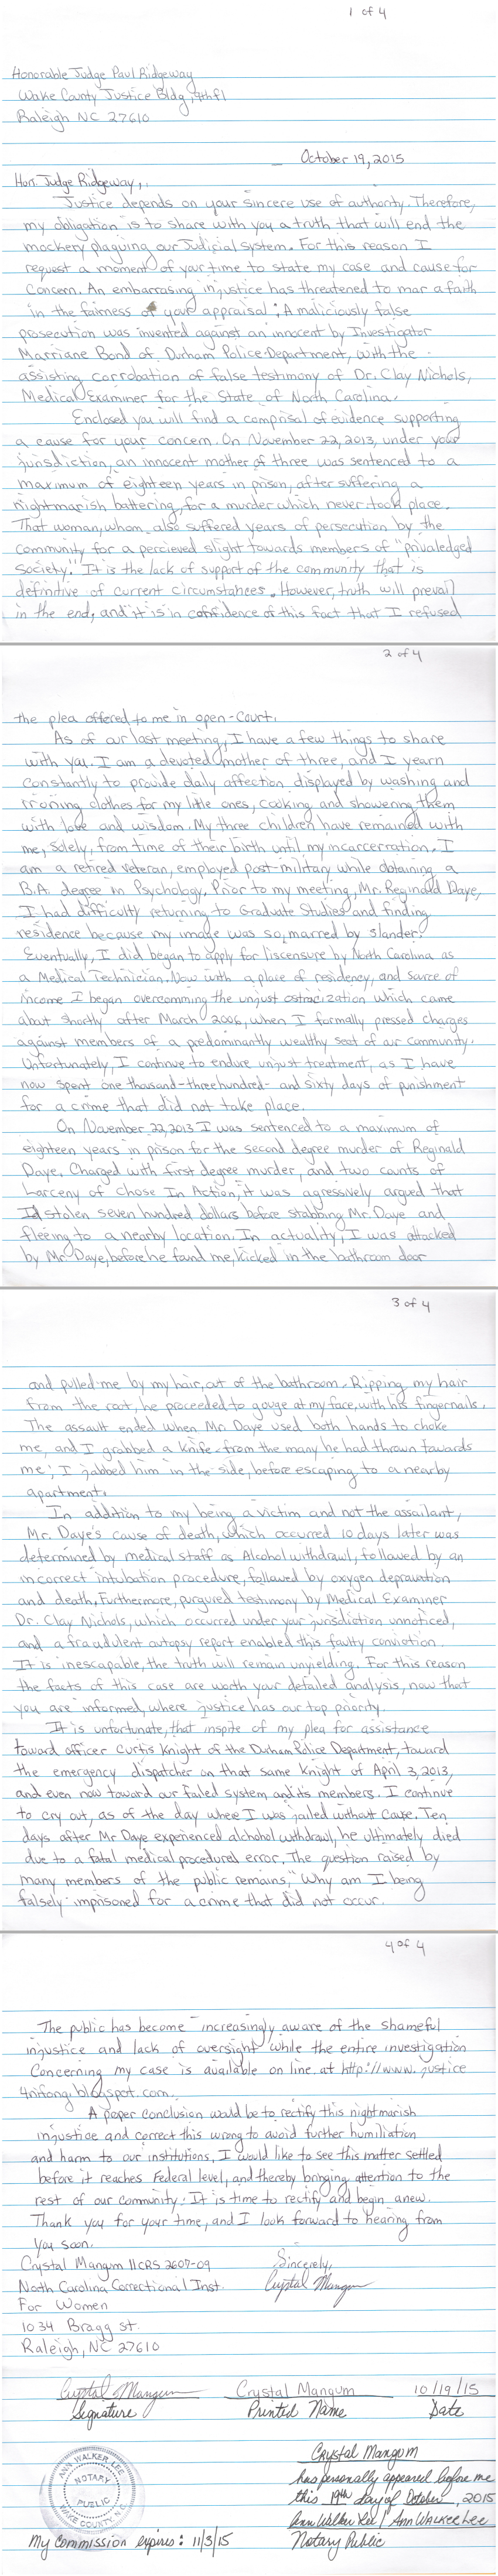 1 of 4
Honorable Judge Paul Ridgeway
Wake County Justice Bldg, 9thfl
Raleigh NC 27610
October 19, 2015
Hon. Judge Ridgeway,
Justice depends on your sincere use of authority. Therefore,
my obligation is to share with you a truth that will end the
mockery plaguing our Judicial system. For this reason I
request a moment of your time to state my case and cause for
concern. An embarrasing injustice has threatened to mar a faith
in the fairness of your appraisal; A maliciously false
prosecution was invented against an innocent by Investigator
Marriane Bond of Durham Police Department, with the
assisting corrobation of false testimony of Dr. Clay Nichols,
Medical Examiner for the State of North Carolina.
Enclosed you will find a comprisal of evidence supporting
a cause for your concern. On November 22, 2013, under your
jurisdiction, an innocent mother of three was sentenced to a
maximum of eighteen years in prison, after suffering a
nightmarish battering, for a murder which never took place.
That woman, whom, also suffered years of persecution by the
community for a percieved slight towards members of "privaledged
Society." It is the lack of support of the community that is
definitive of current circumstances. However, truth will prevail
in the end, and it is in confidence of this fact that I refused
2 of 4
the plea offered to me in open-Court.
As of our last meeting, I have a few things to share
with you. I am a devoted mother of three, and I yearn
constantly to provide daily affection displayed by washing and
ironing clothes for my little ones, cooking and showering them
with love and wisdom. My three children have remained with
me, solely, from time of their birth until my incarcerration. I
am a retired veteran, employed post-military, while obtaining a
B.A. degree in Psychology. Prior to my meeting, Mr. Reginald Daye,
I had difficulty returning to Graduate Studies and finding
residence because my image was so marred by slander.
Eventually, I did began to apply for liscensure by North Carolina as
a Medical Technician. Now with a place of residency, and sorce of
income I began overcomming the unjust ostracization which came
about shortly after March 2006, when I formally pressed charges
against members of a predominantly wealthy seat of our community.
Unfortunately, I continue to endure unjust treatment, as I have
now spent one thousand-three hundred- and sixty days of punishment
for a crime that did not take place.
On November 22, 2013 I was sentenced to a maximum of
eighteen years in prison for the second degree murder of Reginald
Daye. Charged with first degree murder, and two counts of
Larceny of Chose In Action, it was agressively argued that
I'd stolen seven hundred dollars before stabbing Mr. Daye and
fleeing to a nearby location. In actuality, I was attacked
by Mr. Daye, before he found me, kicked in the bathroom door
3 of 4
and pulled me by my hair, out of the bathroom. Ripping my hair
from the root, he proceeded to gouge at my face, with his fingernails.
The assault ended when Mr. Daye used both hands to choke
me, and I grabbed a knife from the many he had thrown towards
me; I jabbed him in the side, before escaping to a nearby
apartment.
In addition to my being a victim and not the assailant,
Mr. Daye's cause of death, which occurred 10 days later was
determined by medical staff as Alcohol withdrawl, followed by an
incorrect intubation procedure, followed by oxygen depravation
and death. Furthermore, purjuried testimony by Medical Examiner
Dr. Clay Nichols, which occurred under your jurisdiction unnoticed,
and a fraudulent autopsy report enabled this faulty conviction.
It is inescapable, the truth will remain unyielding. For this reason
the facts of this case are worth your detailed analysis, now that
you are informed, where justice has our top priority.
It is unfortunate, that inspite of my plea for assistance
toward officer Curtis Knight of the Durham Police Department, toward
the emergency dispatcher on that same Knight of April 3, 2013,
and even now toward our failed system and its members. I continue
to cry out, as of the day where I was jailed without Cause. Ten
days after Mr Daye experienced alchohol withdrawl, he ultimately died
due to a fatal medical procedural error. The question raised by
many members of the public remains, "Why am I being
falsely imprisoned for a crime that did not occur.
4 of 4
The public has become increasingly aware of the shameful
injustice and lack of oversight while the entire investigation
concerning my case is available on line at http://www.justice
4nifong.blogspot.com.
A proper conclusion would be to rectify this nightmarish
injustice and correct this wrong to avoid further humiliation
and harm to our institutions. I would like to see this matter settled
before it reaches Federal level, and thereby bringing attention to the
rest of our community. It is time to rectify and begin anew.
Thank you for your time, and I look forward to hearing from
you soon.
Crystal Mangum 11CRS 2607-09
Sincerely,
North Carolina Correctional Inst.
Crystal Mangum
For Women
1034 Bragg St.
Raleigh, NC 27610
Crystal Mangum Crystal Mangum 10/19/15
Signature Printed Name Date
Crystal Mangum
has personally appeared before me
this 19th day of October, 2015
Ann Walker Lee / Ann Walker Lee
Notary Public
ANN WALKER LEE
NOTARY
PUBLIC
WAKE COUNTY, N.C.
My Commission expires: 11/3/15